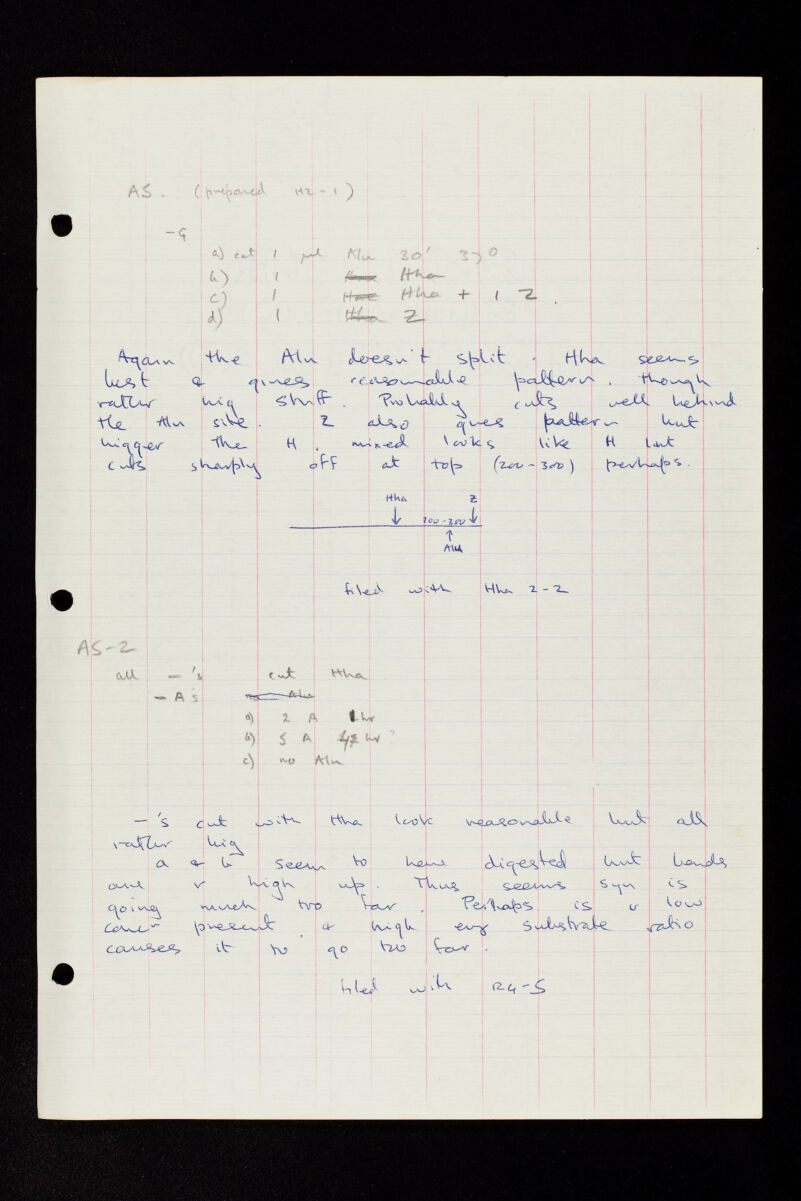 AS. (prepared H2-1)
-G
a) cut 1 μl Alu 30' 37°
b) 1 Hha
c) 1 Hha + 1 Z.
d) 1 Z
Again the Alu doesn't split. Hha seems
best & gives reasonable pattern. though
rather big stuff. Probably cuts well behind
the Alu site. Z also gives pattern but
bigger the H. mixed looks like H but
cuts sharply off at top (200-300) perhaps.
Hha Z
200-300
Alu
filed with Hha 2-2
AS-2
all -'s cut Hha
-A's
a) 2 A 1 hr
b) 5 A hr ?
c) no Alu
-'s cut with Hha look reasonable but all
rather big
a & b seem to have digested but bands
are v high up. Thus seems syn is
going much too far. Perhaps is v low
concn present. & high enz substrate ratio
causes it to go too far.
filed with R4-5